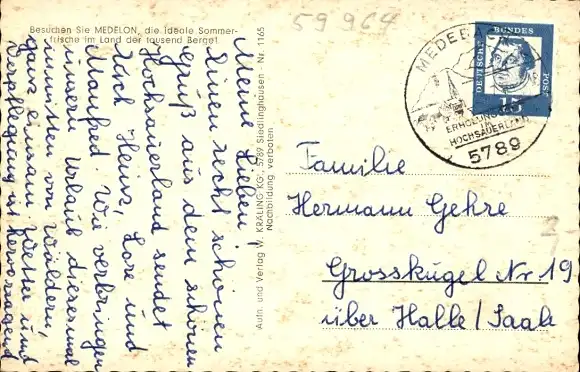 59 9C4
Besuchen Sie MEDELON, die ideale Sommer-
frische im Land der tausend Berge!
Meine Lieben!
Einen recht schönen
Gruß aus dem schönen
Hochsauerland sendet
Euch Heinz, Lore und
Manfred. Wir verbringen
unsern Urlaub diesesmal
inmitten von Wäldern,
ganz einsam. Wetter und
Verpflegung ist hervorragend
Autn. und Verlag W. KRÄLING KG., 5789 Siedlinghausen - Nr. 1165
Nachbildung verboten
MEDEBACH
ERHOLUNG
IM
HOCHSAUERLAND
5789
DEUTSCHE
BUNDES
POST
15
Familie
Hermann Gehre
Grosskugel Nr 19
über Halle/Saale